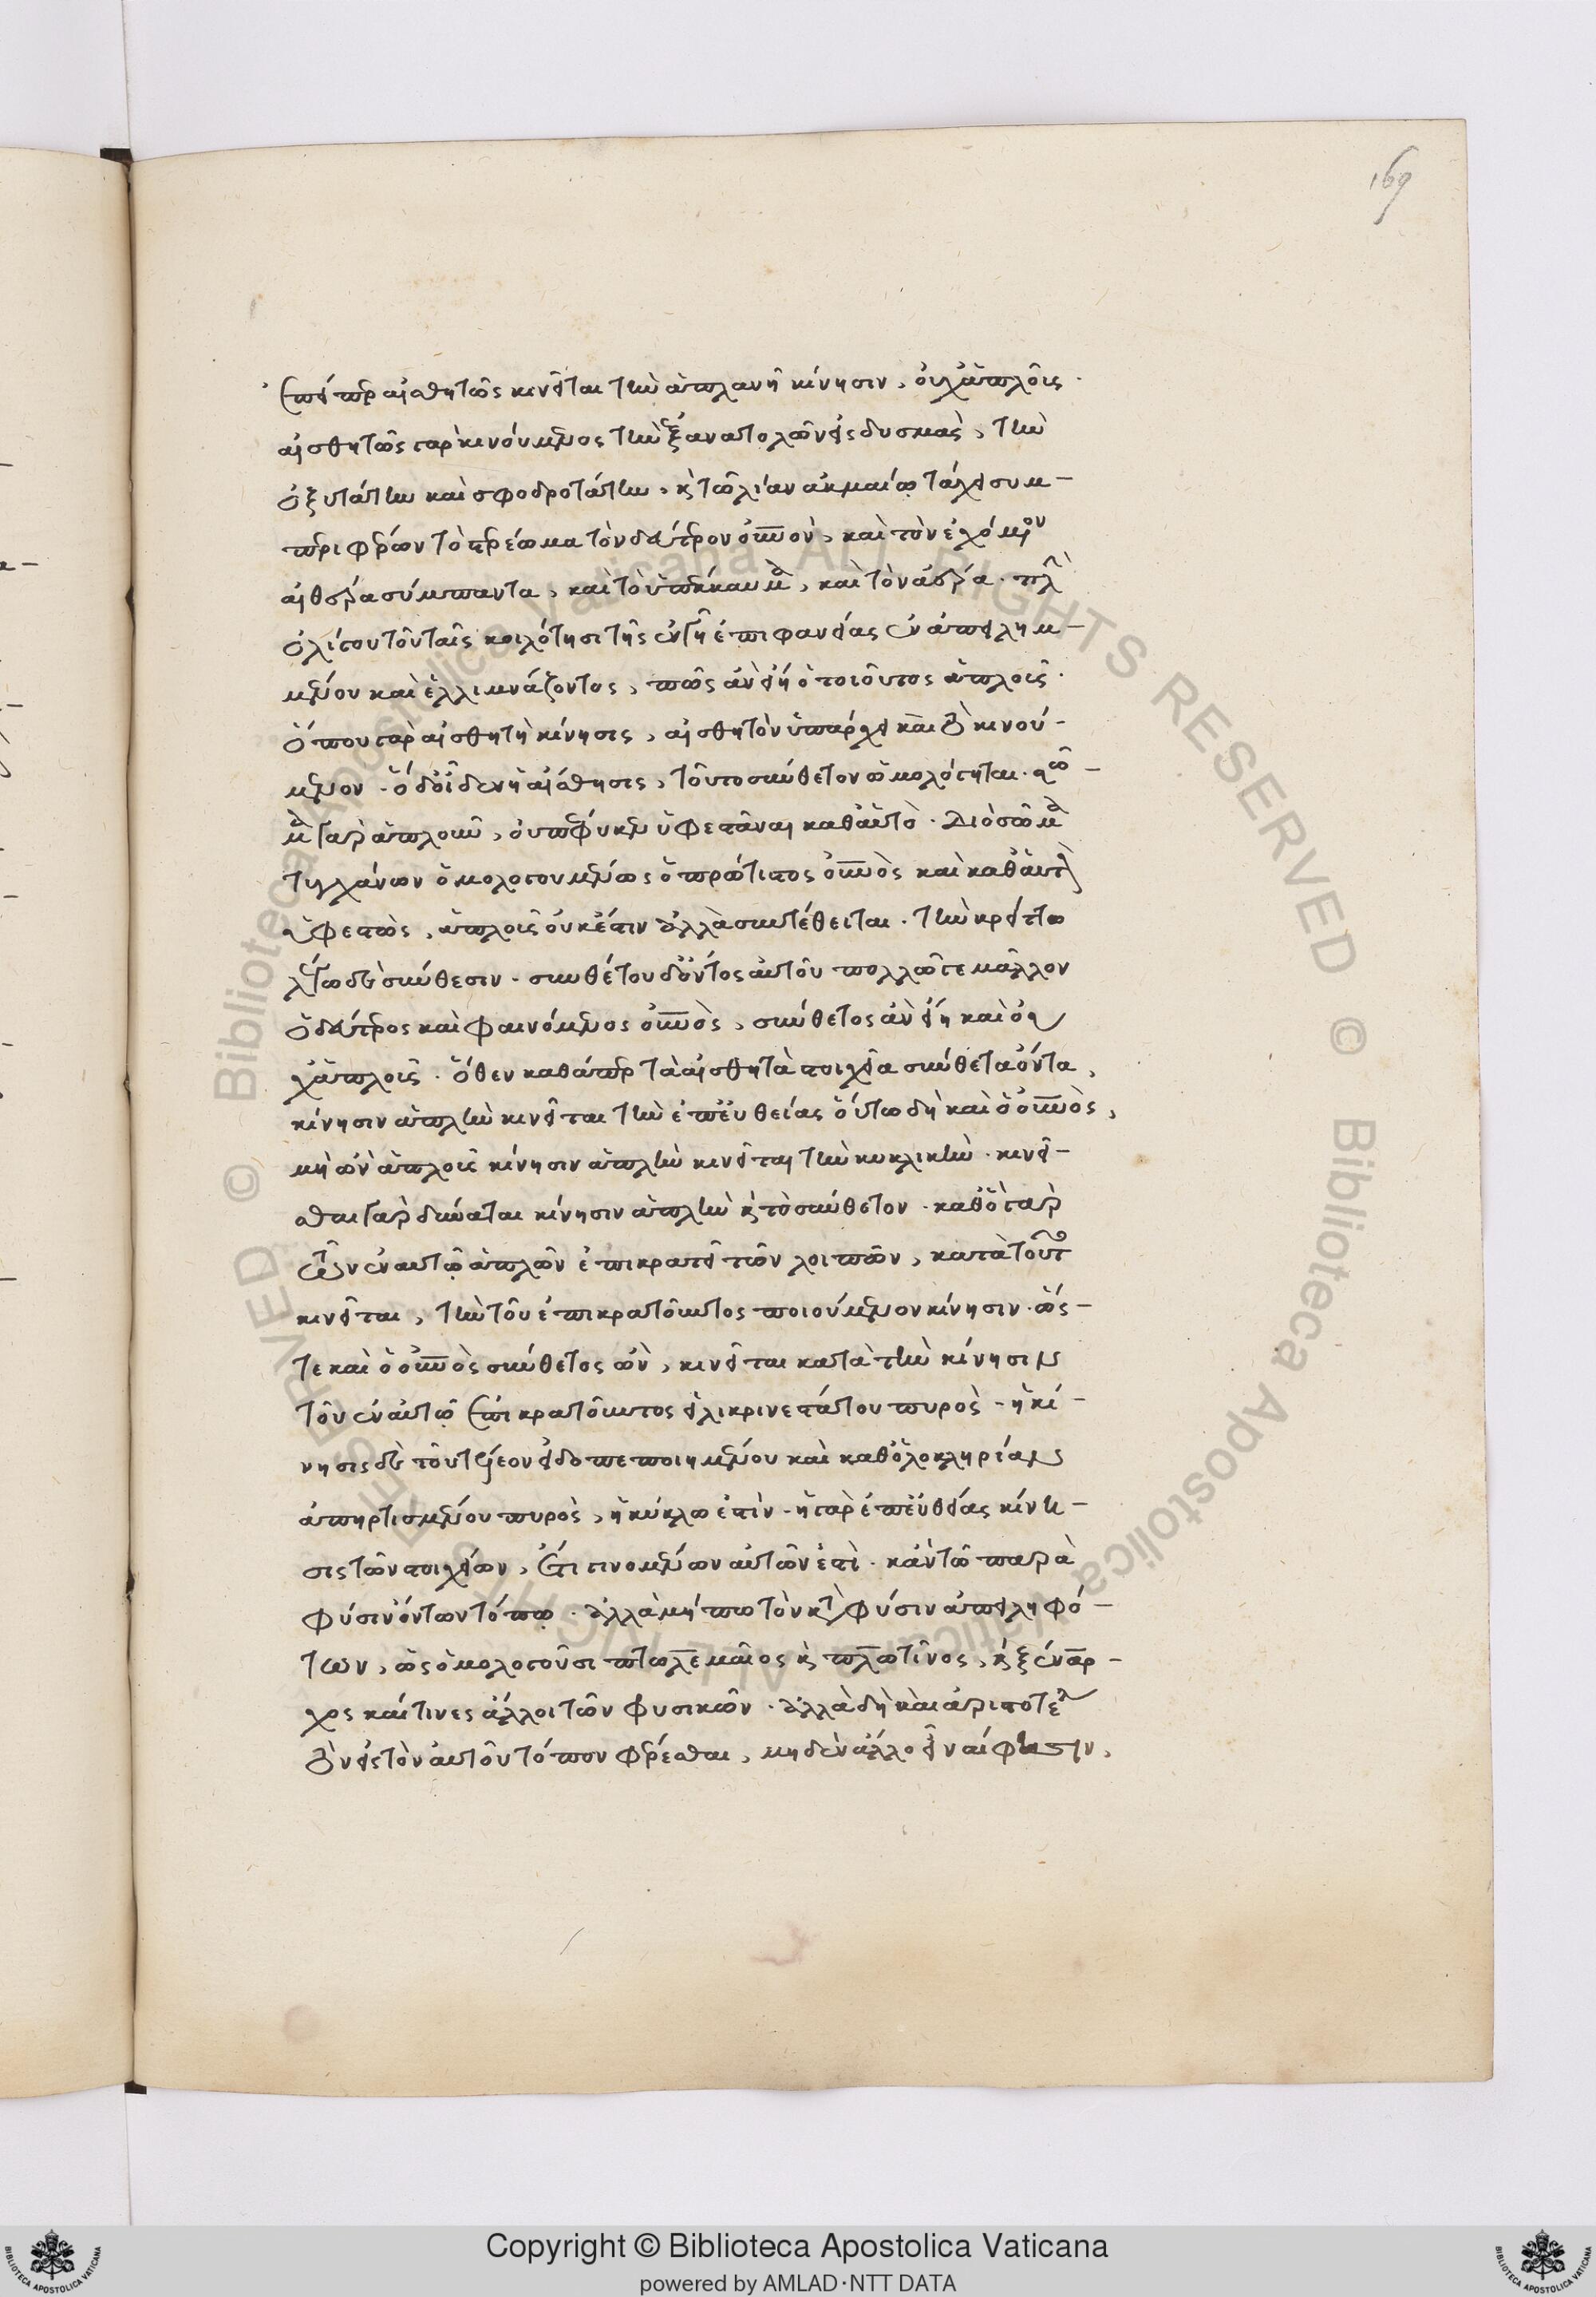 169
ἐπείπερ αἰσθητῶς κινεῖται τὴν ἁπλανῆ κίνησιν, οὐχ ἁπλοῦς.
αἰσθητῶς γὰρ κινούμενος τὴν ἐξ ἀνατολῶν εἰς δυσμὰς, τὴν
ὀξυτάτην καὶ σφοδροτάτην, κ τῶ λίαν ἀκμαίῳ τάχει συμ-
περιφέρων τὸ στερέωμα τὸν δεύτερον οὐνον, καὶ τὸν ἐχόμενον
αἰθέρα σύμπαντα, καὶ τὸ ὑπέκκαυμα, καὶ τὸν ἀέρα. πλὴν
ὀλίγου τοῦ ταῖς κοιλότησι τῆς ἐν γῆ ἐπιφανείας ἐναπειλημ-
μένου καὶ ἐλλιμνάζοντος, πῶς ἂν εἴη ὁ τοιοῦτος ἁπλοῦς.
ὅπου γὰρ αἰσθητὴ κίνησις, αἰσθητὸν ὑπάρχει καὶ τὸ κινού-
μενον. ὃ δ' οἶδεν ἡ αἴσθησις, τοῦτο σύνθετον ὡμολόγηται. σῶ-
μα γὰρ ἁπλοῦν, οὐ πέφυκεν ὑφεστᾶναι καθ' αὑτό. Διὸ σῶμα
τυγχάνων ὁμολογουμένως ὁ πρώτιστος οὐνὸς καὶ καθ' αὑτὸν
ὑφεστὼς, ἁπλοῦς οὐκ ἔστιν ἀλλὰ συντέθειται. τὴν κρείττω
λέγω δὲ σύνθεσιν. συνθέτου δ' ὄντος αὐτοῦ πολλῶ γε μᾶλλον
ὁ δεύτερος καὶ φαινόμενος οὐνὸς, σύνθετος ἂν εἴη καὶ οὐ-
χ ἁπλοῦς. ὅθεν καθάπερ τὰ αἰσθητὰ στοιχεῖα σύνθετα ὄντα,
κίνησιν ἁπλῆν κινεῖται τὴν ἐπ' εὐθείας οὕτω δὴ καὶ ὁ οὐνὸς,
μὴ ὢν ἁπλοῦς κίνησιν ἁπλῆν κινεῖται τὴν κυκλικὴν. κινεῖ-
σθαι γὰρ δύναται κίνησιν ἁπλῆν κ τὸ σύνθετον. καθ' ὃ γὰρ
τῶν ἐν αὐτῷ ἁπλῶν ἐπικρατεῖ τῶν λοιπῶν, κατὰ τοῦτο
κινεῖται, τὴν τοῦ ἐπικρατοῦντος ποιούμενον κίνησιν. ὥς-
τε καὶ ὁ οὐνὸς σύνθετος ὢν, κινεῖται κατὰ τὴν κίνησιν
τοῦ ἐν αὐτῷ ἐπικρατοῦντος εἰλικρινεστάτου πυρὸς. ἡ κί-
νησις δὲ τοῦ τέλεον εἰδοπεποιημένου καὶ καθ' ὁλοκληρίαν
ἀπηρτισμένου πυρὸς, ἡ κύκλω ἐστὶν. ἡ γὰρ ἐπ' εὐθείας κίνη-
σις τῶν στοιχείων, ἔτι γινομένων αὐτῶν ἐστὶ. κἀν τῶ παρὰ
φύσιν ὄντων τόπῳ. ἀλλὰ μήπω τὸν κατὰ φύσιν ἀπειληφό-
των, ὡς ὁμολογοῦσι πτολεμαῖος κ πλωτῖνος, κ ξέναρ-
χος καί τινες ἄλλοι τῶν φυσικῶν. ἀλλὰ δὴ καὶ ἀριστοτέλης
τὸ εἰς τὸν αὐτοῦ τόπον φέρεσθαι, μηδὲν ἄλλο εἶναί φησιν,
Copyright © Biblioteca Apostolica Vaticana
powered by AMLAD·NTT DATA